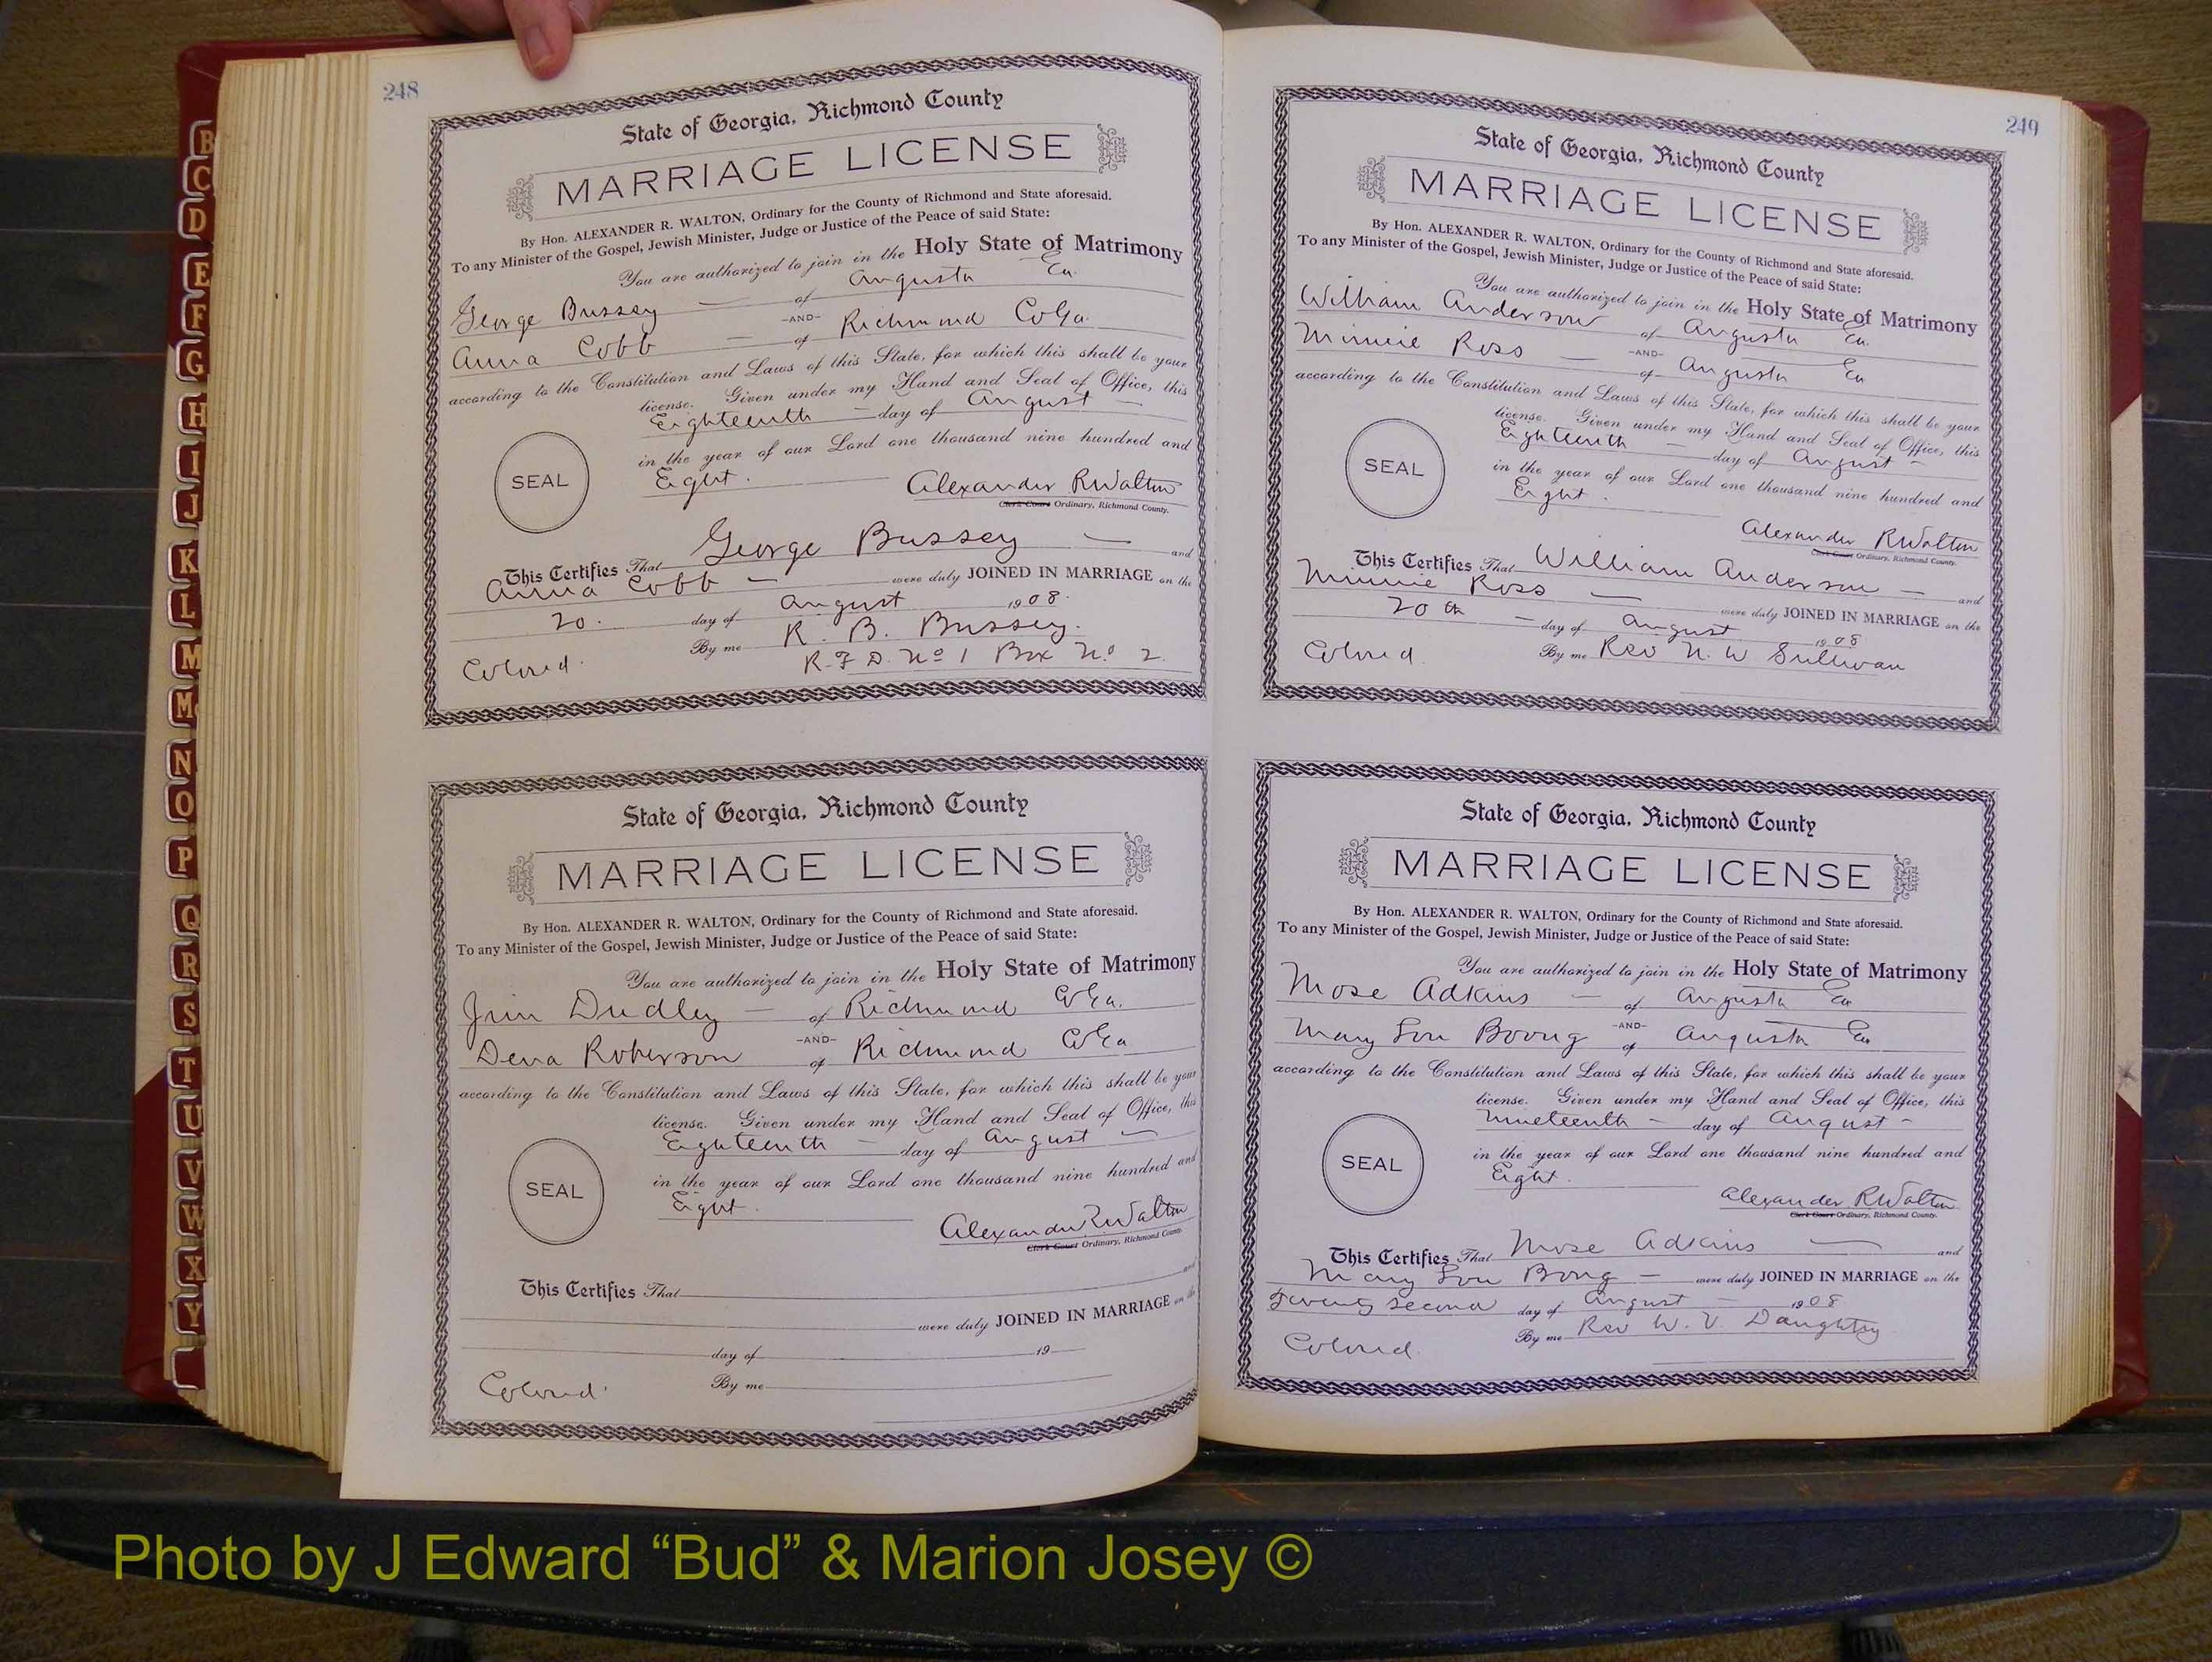 248
State of Georgia, Richmond County
MARRIAGE LICENSE
By Hon. ALEXANDER R. WALTON, Ordinary for the County of Richmond and State aforesaid.
To any Minister of the Gospel, Jewish Minister, Judge or Justice of the Peace of said State:
You are authorized to join in the Holy State of Matrimony
George Bussey — of Augusta Ga.
-AND-
Anna Cobb — of Richmond Co Ga.
according to the Constitution and Laws of this State, for which this shall be your
license. Given under my Hand and Seal of Office, this
Eighteenth — day of August —
in the year of our Lord one thousand nine hundred and
Eight.
SEAL
Alexander R Walton
Clerk Court Ordinary, Richmond County.
This Certifies That George Bussey — and
Anna Cobb — were duly JOINED IN MARRIAGE on the
20. day of August 1908.
By me R. B. Bussey.
Colored. R.F.D. No 1 Box No. 2.
State of Georgia, Richmond County
MARRIAGE LICENSE
By Hon. ALEXANDER R. WALTON, Ordinary for the County of Richmond and State aforesaid.
To any Minister of the Gospel, Jewish Minister, Judge or Justice of the Peace of said State:
You are authorized to join in the Holy State of Matrimony
Jim Dudley — of Richmond Co Ga.
-AND-
Dena Roberson of Richmond Co Ga
according to the Constitution and Laws of this State, for which this shall be your
license. Given under my Hand and Seal of Office, this
Eighteenth — day of August —
in the year of our Lord one thousand nine hundred and
Eight.
SEAL
Alexander R Walton
Clerk Court Ordinary, Richmond County.
This Certifies That and
were duly JOINED IN MARRIAGE on the
day of 19
Colored. By me
249
State of Georgia, Richmond County
MARRIAGE LICENSE
By Hon. ALEXANDER R. WALTON, Ordinary for the County of Richmond and State aforesaid.
To any Minister of the Gospel, Jewish Minister, Judge or Justice of the Peace of said State:
You are authorized to join in the Holy State of Matrimony
William Anderson of Augusta Ga.
-AND-
Minnie Ross — of Augusta Ga
according to the Constitution and Laws of this State, for which this shall be your
license. Given under my Hand and Seal of Office, this
Eighteenth — day of August —
in the year of our Lord one thousand nine hundred and
Eight.
SEAL
Alexander R Walton
Clerk Court Ordinary, Richmond County.
This Certifies That William Anderson — and
Minnie Ross — were duly JOINED IN MARRIAGE on the
20th — day of August 1908
Colored. By me Rev N. W Sullivan
State of Georgia, Richmond County
MARRIAGE LICENSE
By Hon. ALEXANDER R. WALTON, Ordinary for the County of Richmond and State aforesaid.
To any Minister of the Gospel, Jewish Minister, Judge or Justice of the Peace of said State:
You are authorized to join in the Holy State of Matrimony
Mose Adkins — of Augusta Ga
-AND-
Mary Lou Boong of Augusta Ga
according to the Constitution and Laws of this State, for which this shall be your
license. Given under my Hand and Seal of Office, this
Nineteenth — day of August —
in the year of our Lord one thousand nine hundred and
Eight.
SEAL
Alexander R Walton
Clerk Court Ordinary, Richmond County.
This Certifies That Mose Adkins — and
Mary Lou Bong — were duly JOINED IN MARRIAGE on the
Twenty second day of August — 1908
By me Rev W. V. Daughtry
Colored.
B
C
D
E
F
G
H
I
J
K
L
M
Mc
N
O
P
Q
R
S
T
U
V
W
X
Y
Photo by J Edward “Bud” & Marion Josey ©